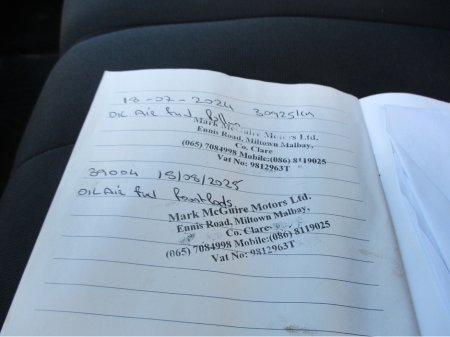 18-07-2024 30925 km
OIL Air fuel
Mark McGuire Motors Ltd.
Ennis Road, Miltown Malbay,
Co. Clare
(065) 7084998 Mobile:(086) 8119025
Vat No: 9812963T
39004 18/08/2025
OIL Air fuel
Mark McGuire Motors Ltd.
Ennis Road, Miltown Malbay,
Co. Clare
(065) 7084998 Mobile:(086) 8119025
Vat No: 9812963T